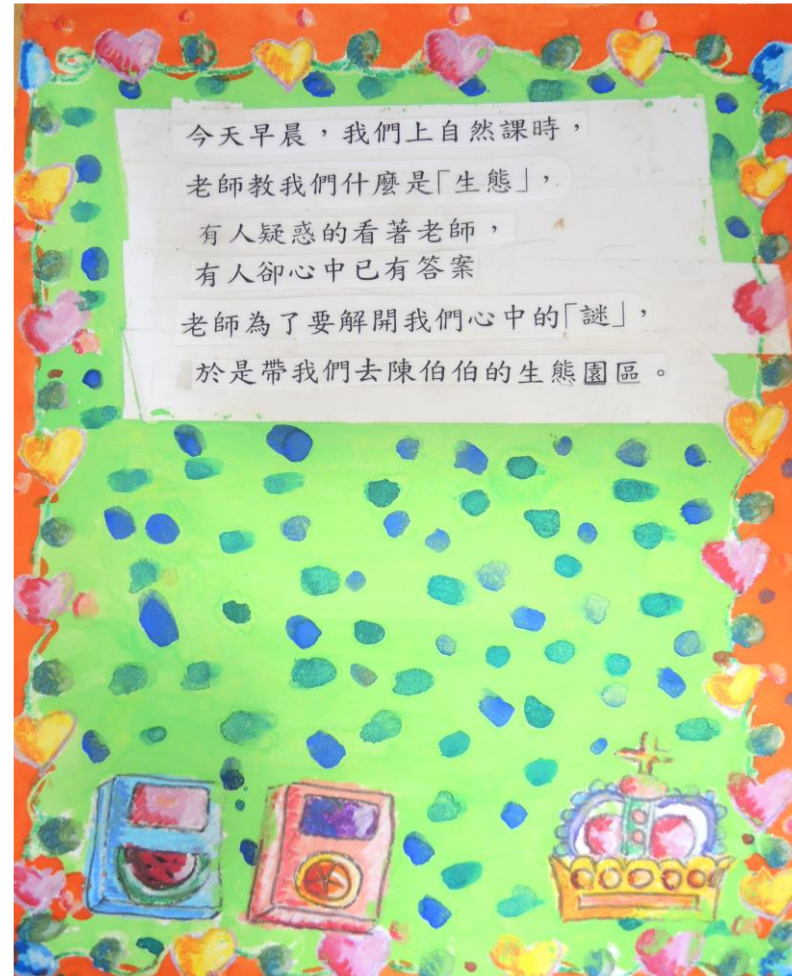 今天早晨，我們上自然課時，
老師教我們什麼是「生態」，
有人疑惑的看著老師，
有人卻心中已有答案
老師為了要解開我們心中的「謎」，
於是帶我們去陳伯伯的生態園區。